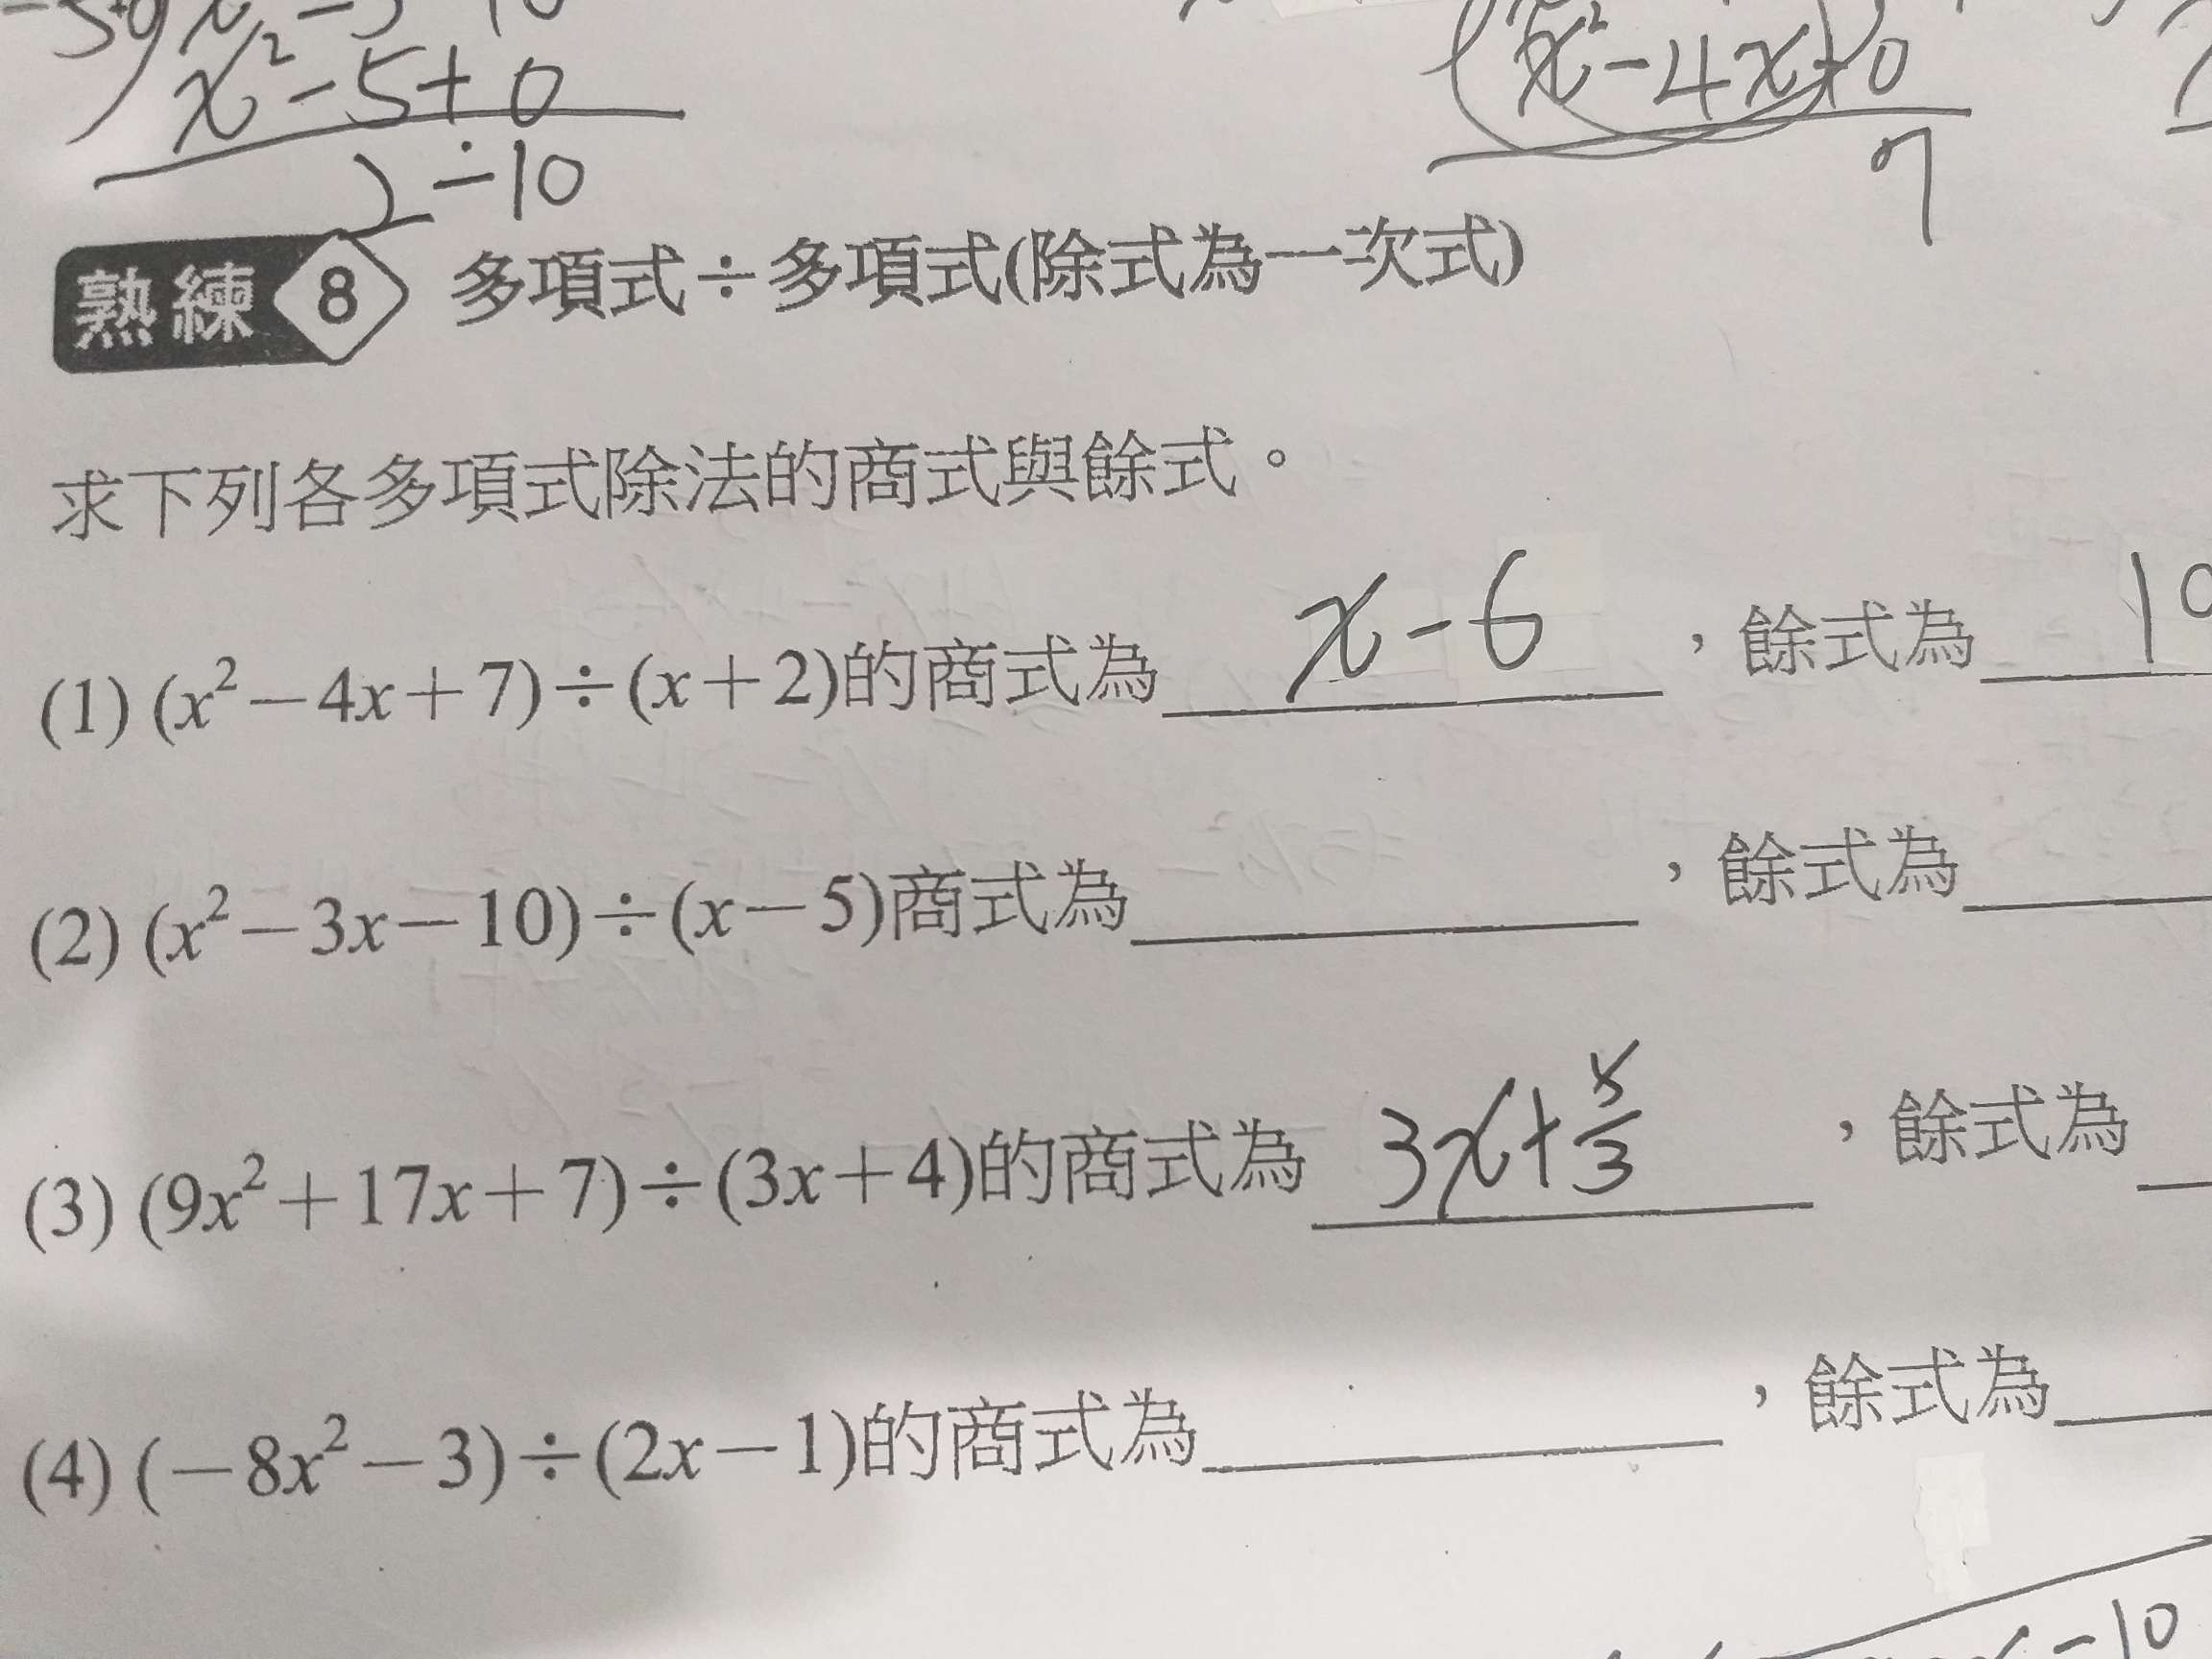 x²-5+0
x²-4x+0
2-10
7
熟練 8 多項式÷多項式(除式為一次式)
求下列各多項式除法的商式與餘式。
(1) (x²-4x+7)÷(x+2)的商式為 x-6 ，餘式為
(2) (x²-3x-10)÷(x-5)商式為 ，餘式為
(3) (9x²+17x+7)÷(3x+4)的商式為 3x+5/3 ，餘式為
(4) (-8x²-3)÷(2x-1)的商式為 ，餘式為
-10